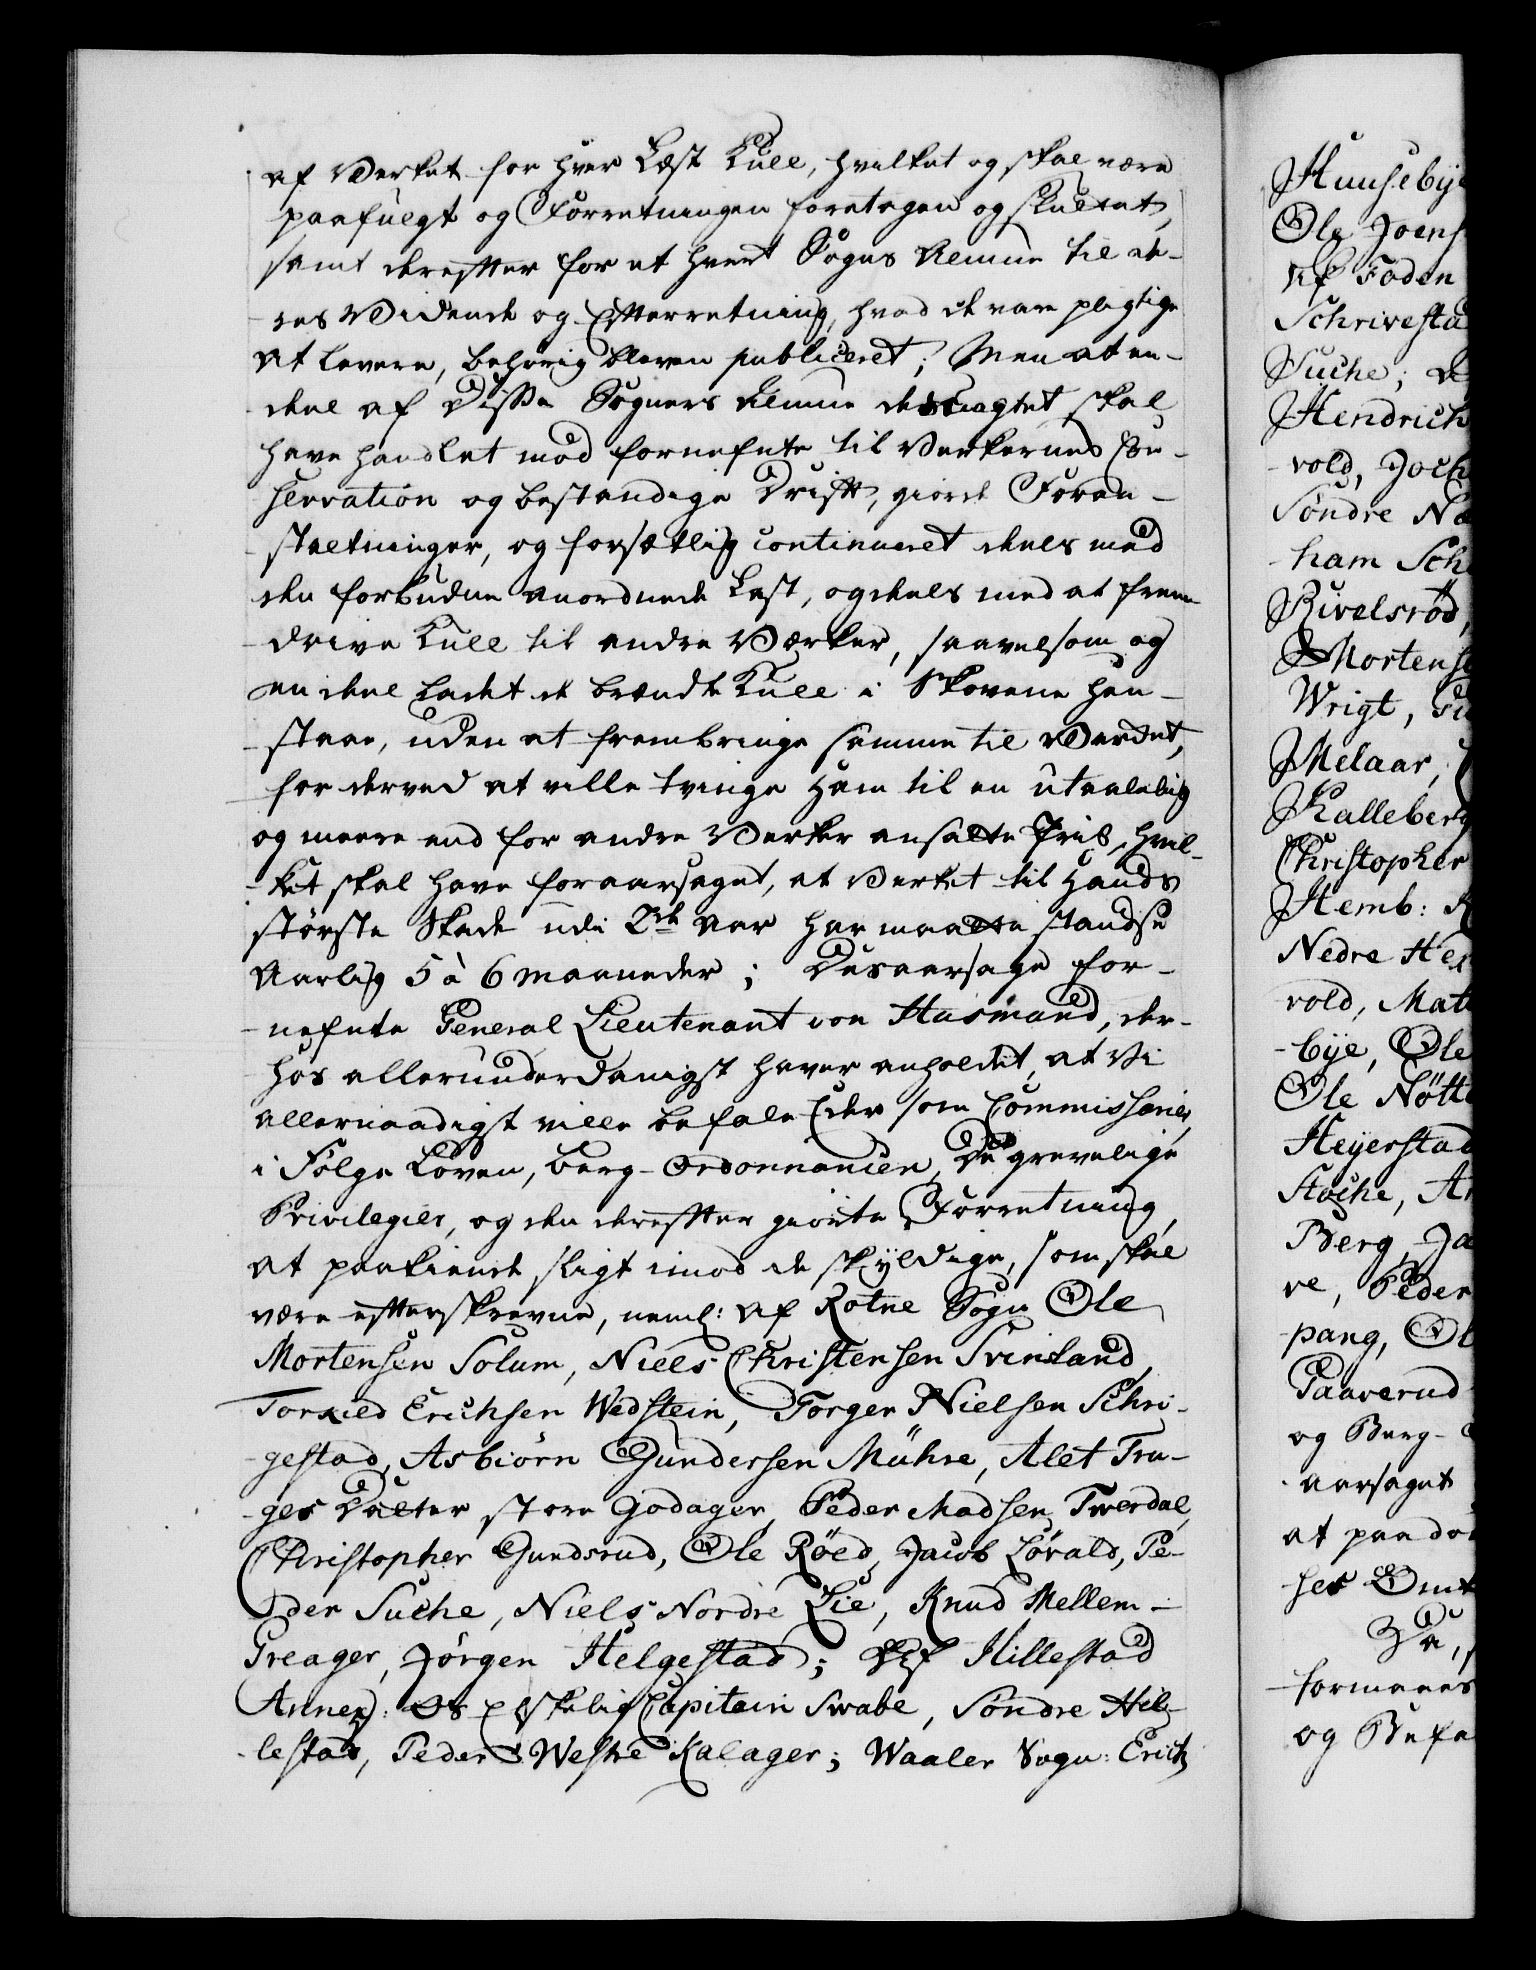 af Verket for hver Læst Kull, hvilket og skal være
paafulgt og Forretningen foretagen og sluttet,
samt derefter for et hvert Sogns Almue til de-
res Vidende og Efterretning, hvad de vare pligtige
at levere, behørig bleven publiceret; Men at en-
deel af disse Sogners Almue desuagtet skal
have handlet mod fornefnte til Verkernes Con-
servation og bestandige Drift, giorde Foran-
staltninger, og forsætlig continueret deels med
den forbudne anordnede Last, og deels med at frem-
drive Kull til andre Værker, saavelsom og
en deel ladet de brændte Kull i Skovene hen-
staae, uden at frembringe samme til Verket,
for derved at ville tvinge ham til en utaalelig
og meere end for andre Verker ansatte Priis, hvil-
ket skal have foraarsaget, at Verket til Hands
største Skade udi 2de Aar har maatte standse
Aarlig 5 à 6 Maaneder; Desaarsage for-
nefnte General Lieutenant von Hausmand, der-
hos allerunderdanigst haver anholdet, at Vi
allernaadigst ville befale Eder som Commissarier,
i Følge Loven, Berg-Ordonnancen, De grevelige
Privilegier, og den derefter giorte Forretning,
at paakiende sligt imod de skyldige, som skal
være efterskrevne, neml: af Botne Sogn Ole
Mortensen Solum, Niels Christensen Svinland,
Torkild Erichsen Wedstein, Torger Nielsen Schri-
gestad, Asbiørn Gundersen Mühre, Alet Tru-
ges Datter store Godager, Peder Madsen Twerdal,
Christopher Gundsrud, Ole Röed, Jacob Lövald, Pe-
der Suche, Niels Nordre Lie, Knud Mellem-
Greager, Jörgen Helgestad; Af Hillestad
Annex: Os Elskelig Capitain Swabe, Söndre Hil-
lestad, Peder Westre Kalager; Waaler Sogn: Erich
Huusebye
Ole Joens
Af Foden
Schrivesta
Suche;
Hendrich
vold, Joch
Söndre
ham Sch
Rivelsröd,
Mortens
Wrigt,
Melaar,
Kalleberg
Christopher
Hemb:
Nedre
vold, Mat
bÿe, Ole
Ole Nött
Heyerstad
Stoche,
Berg, Ja
re, Peder
pang, Ol
Paaverud
og Berg-
aarsaget
at paadö
ses Omk
Da,
formeres
og Befa